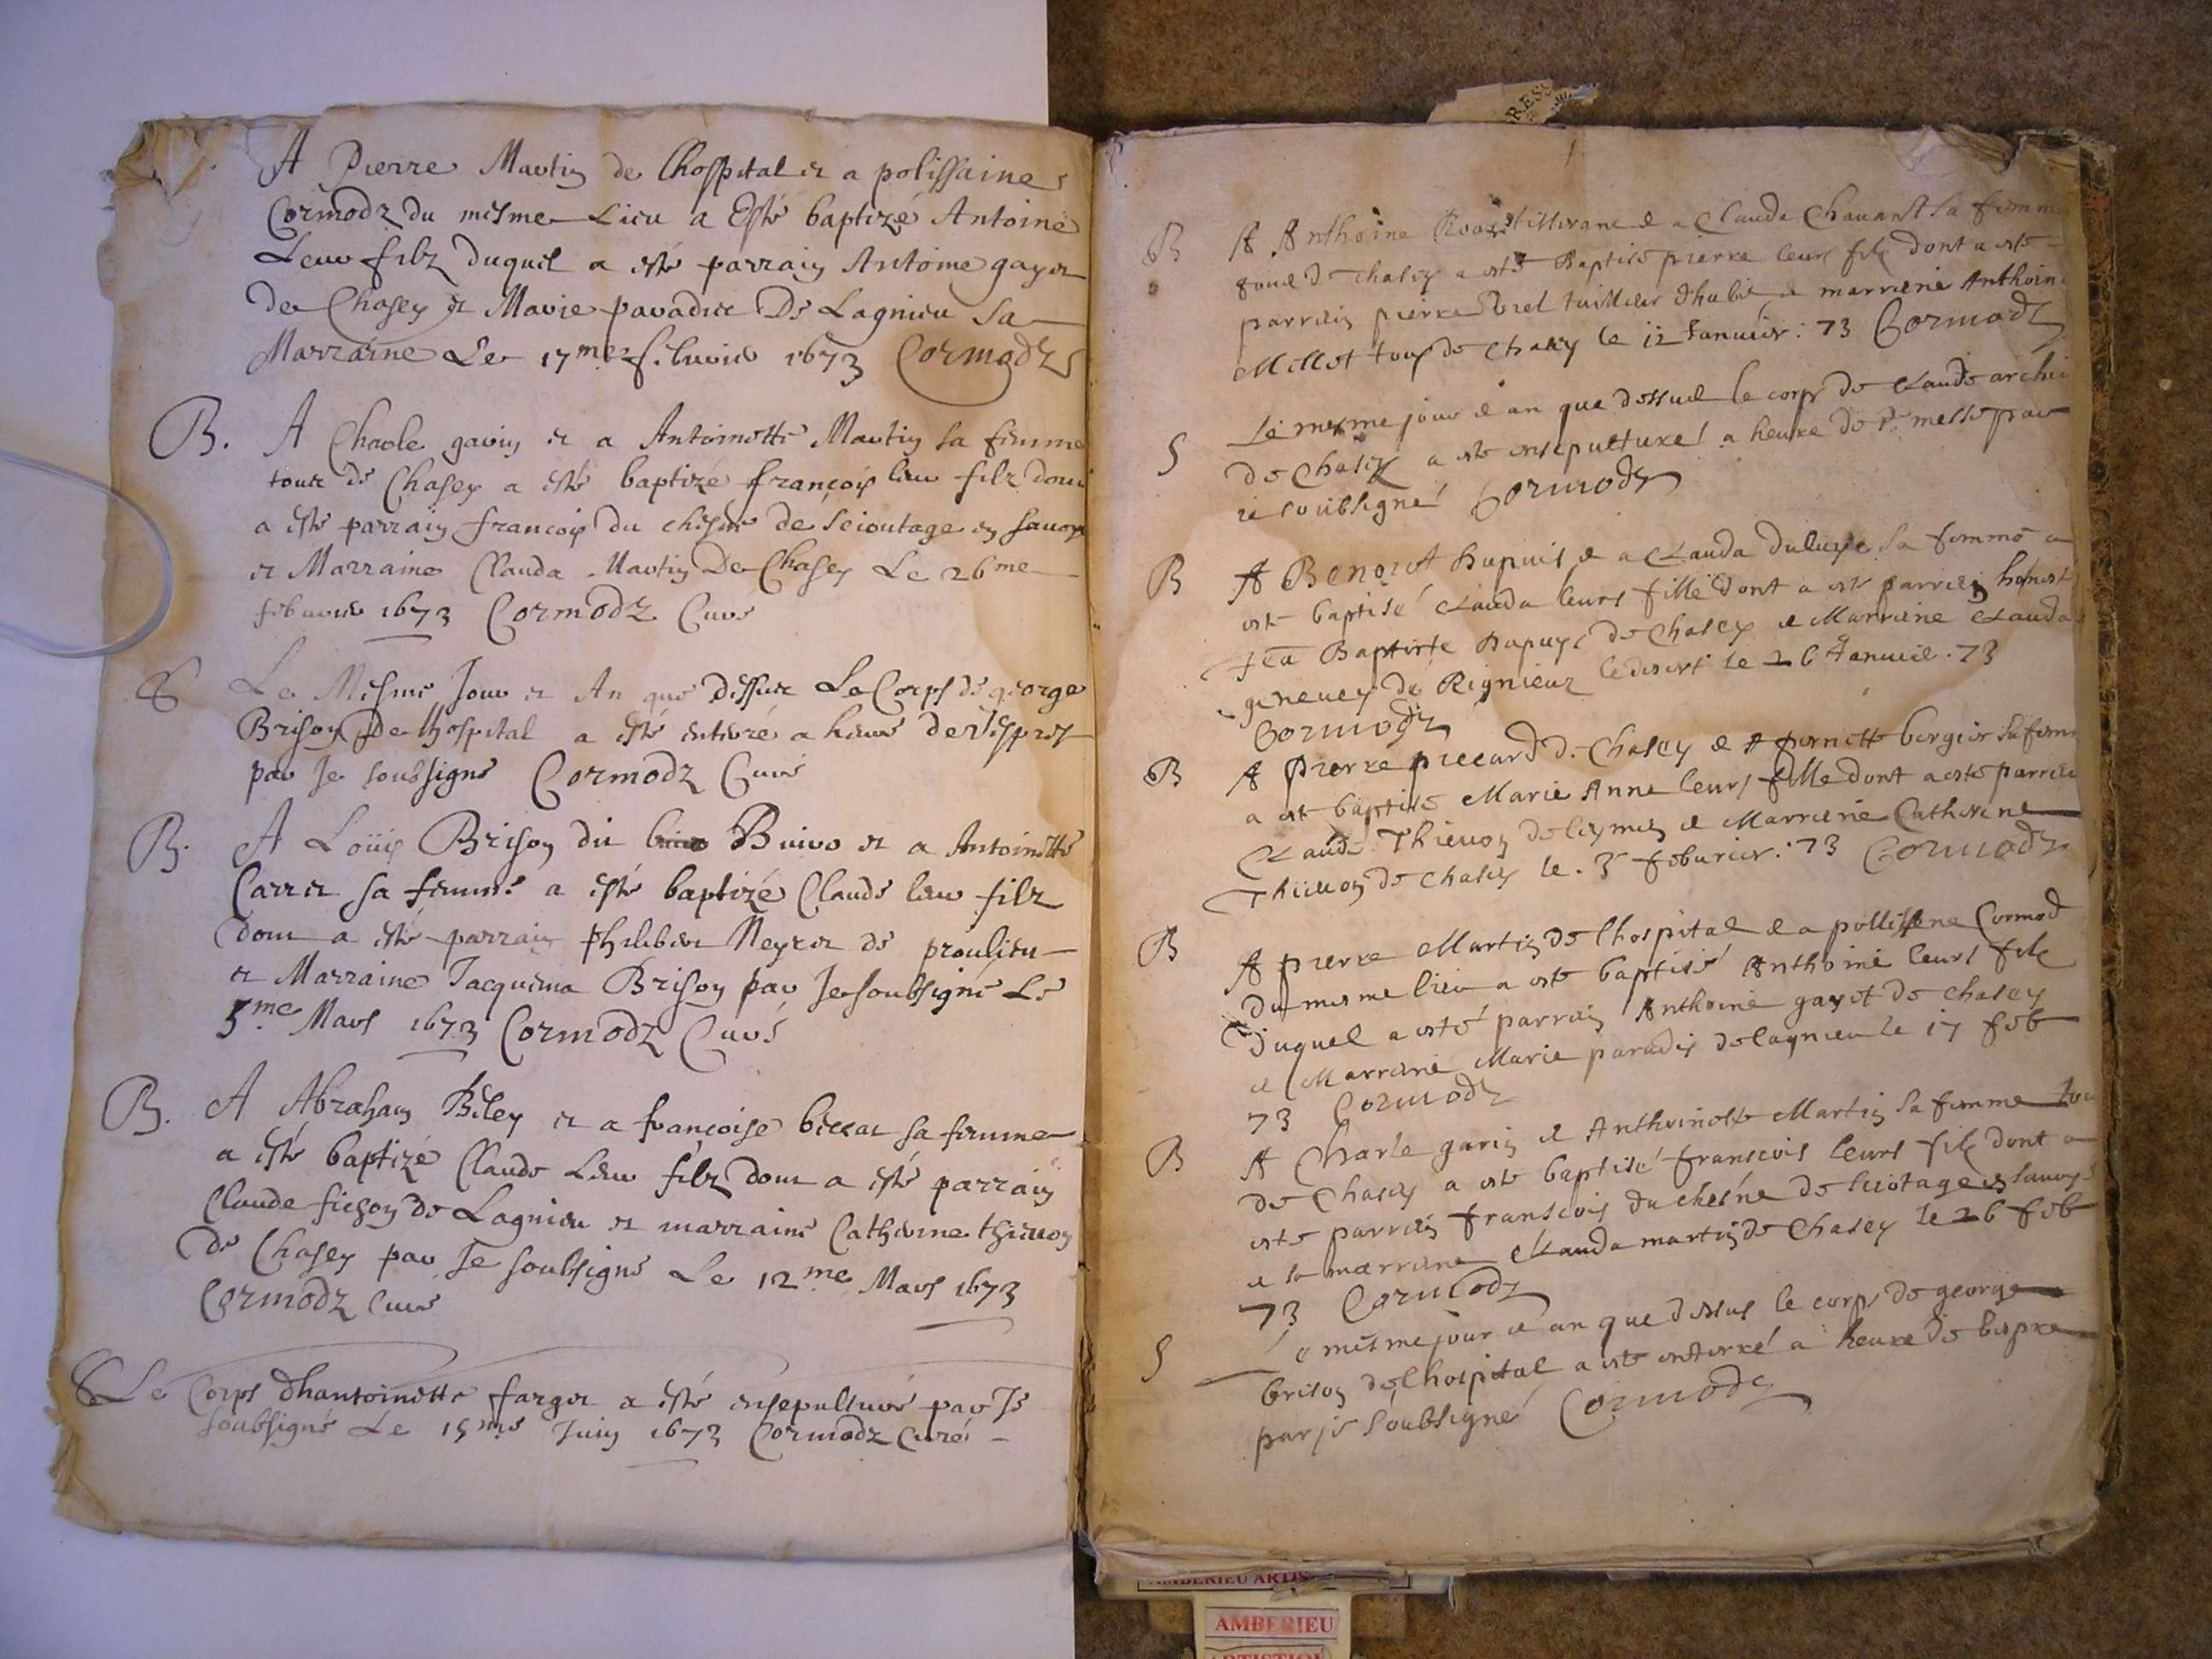 A Pierre Martin de Lhospital et a polissaine
Cormodz du mesme Lieu a Esté baptizé Antoine
Leur filz duquel a esté parrain Antoine gayet
de Chasey et Marie paradict De Lagnieu Sa
Marraine Le 17me febvrier 1673 Cormodz
B. A Charle garin et a Antoinette Martin sa femme
touts de Chasey a esté baptizé françois leur filz dont
a esté parrain francois du chesne de seioutage en savoye
et Marraine Clauda Martin De Chasey Le 26me
febvrier 1673 Cormodz Curé
S Le Mesme Jour et An que dessus Le Corps de george
Brison De Lhospital a esté enterré a heure de Vespres
par Je soussigné Cormodz Curé
B. A Loüis Brison dit Buivo et a Antoinette
Carret sa femme a esté baptizé Claude leur filz
dont a esté parrain philibert Neyret de proulieu
et Marraine Jacquema Brison par Je soubsigné Le
5.me Mars 1673 Cormodz Curé
B. A Abraham Biley et a francoise beccat sa femme
a esté baptizé Claude Leur filz dont a esté parrain
Claude fichon de Lagnieu et marraine Catherine thievon
de Chasey par Je soubsigné Le 12me Mars 1673
Cormodz Curé
S Le Corps dhantoinette farget a esté ensepulturé par Je
soubsigné Le 15me Juin 1673 Cormodz Curé
PRESS
B A Anthoine tisserand et a Clauda Chavant sa femme
tous de chasey a esté Baptisé pierre leurs filz dont a esté
parrein pierre Borel tailleur dhabis et marreine Anthoine
Millet tous de Chasey le 12 Januier: 73 Cormodz
S Le mesme jour et an que dessus le corps de claude
de Chasey a esté ensepulturé a heure de messe par
je soubsigné Cormodz
B A Benoict Dupuis et a Clauda sa femme a
esté baptisé Clauda leurs fille dont a esté parrein honest
Jea Baptiste Dupuys de Chasey et Marreine Clauda
genevey de Rignieux le desert le 26 Januier. 73
Cormodz
B A Pierre piccard de Chasey et a pernette bergier sa femme
a esté baptisé Marie Anne leurs fille dont a esté parrein
Claude Thievon de leymen et Marreine Catherine
Thievon de chasey le. 5 feburier: 73 Cormodz
B A pierre Martin de lhospital et a pollissene Cormod
du mesme lieu a esté baptisé Anthoine leurs filz
duquel a esté parrein Anthoine gayet de chasey
et Marreine Marie paradis de lagnieu le 17 feb
73 Cormodz
B A Charle garin et Anthoinette Martin sa femme tou
de Chasey a esté baptisé franscois leurs filz dont a
esté parrein franscois du chesne de seiotage en savoye
et sa marreine Clauda martin de Chasey le 26 feb
73 Cormodz
S Le mesme jour et an que dessus le corps de george
brison de lhospital a esté enterré a heure de bespre
par je soubsigné Cormodz
AMBERIEU ARTIS
AMBERIEU